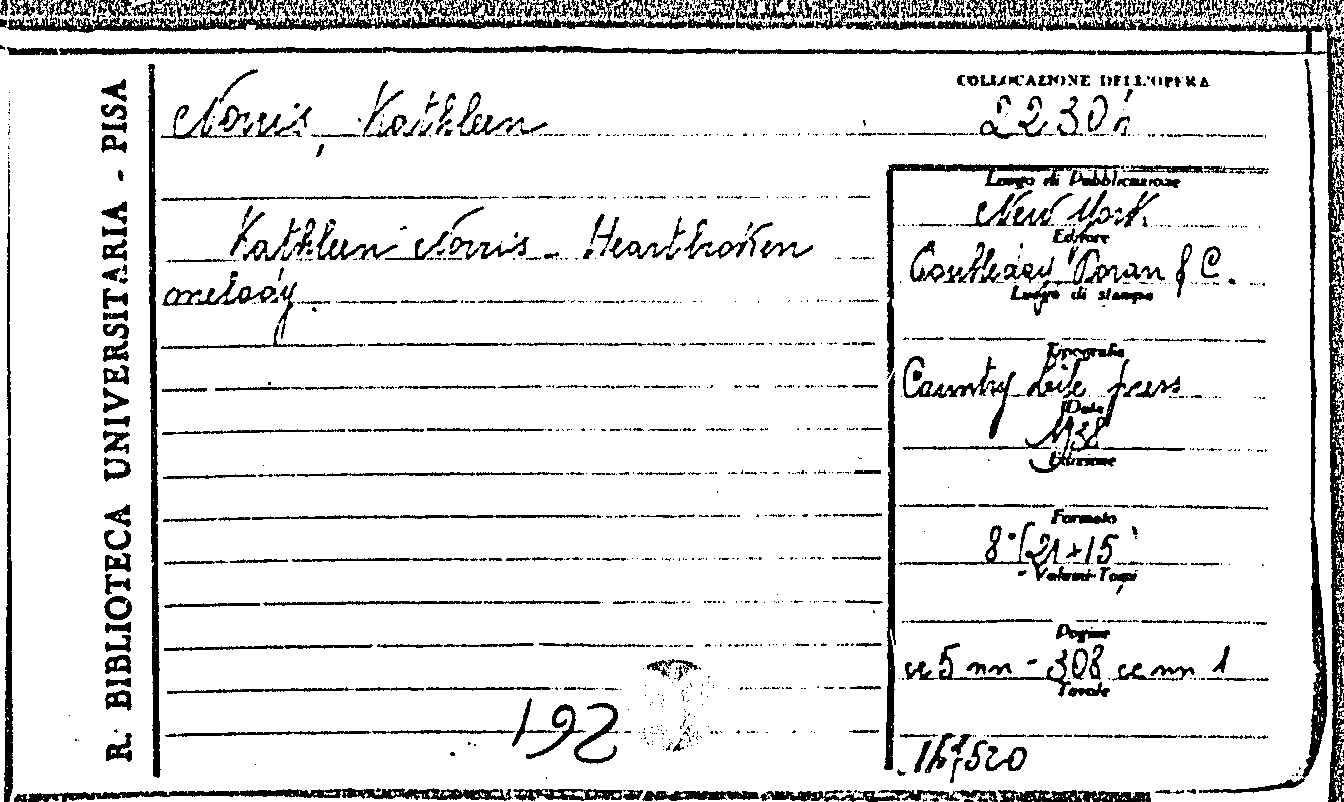 R. BIBLIOTECA UNIVERSITARIA - PISA
COLLOCAZIONE DELL'OPERA
Norris, Kathleen
Kathleen Norris - Heartbroken
melody.
Luogo di Pubblicazione
New York.
Editore
Doran & C.
Luogo di stampa
Tipografia
Country Life press
Data
1938
Edizione
Formato
8° (21×15
Volumi-Tomi
Pagine
cc 5 nn - 308 cc nn 1
Tavole
192